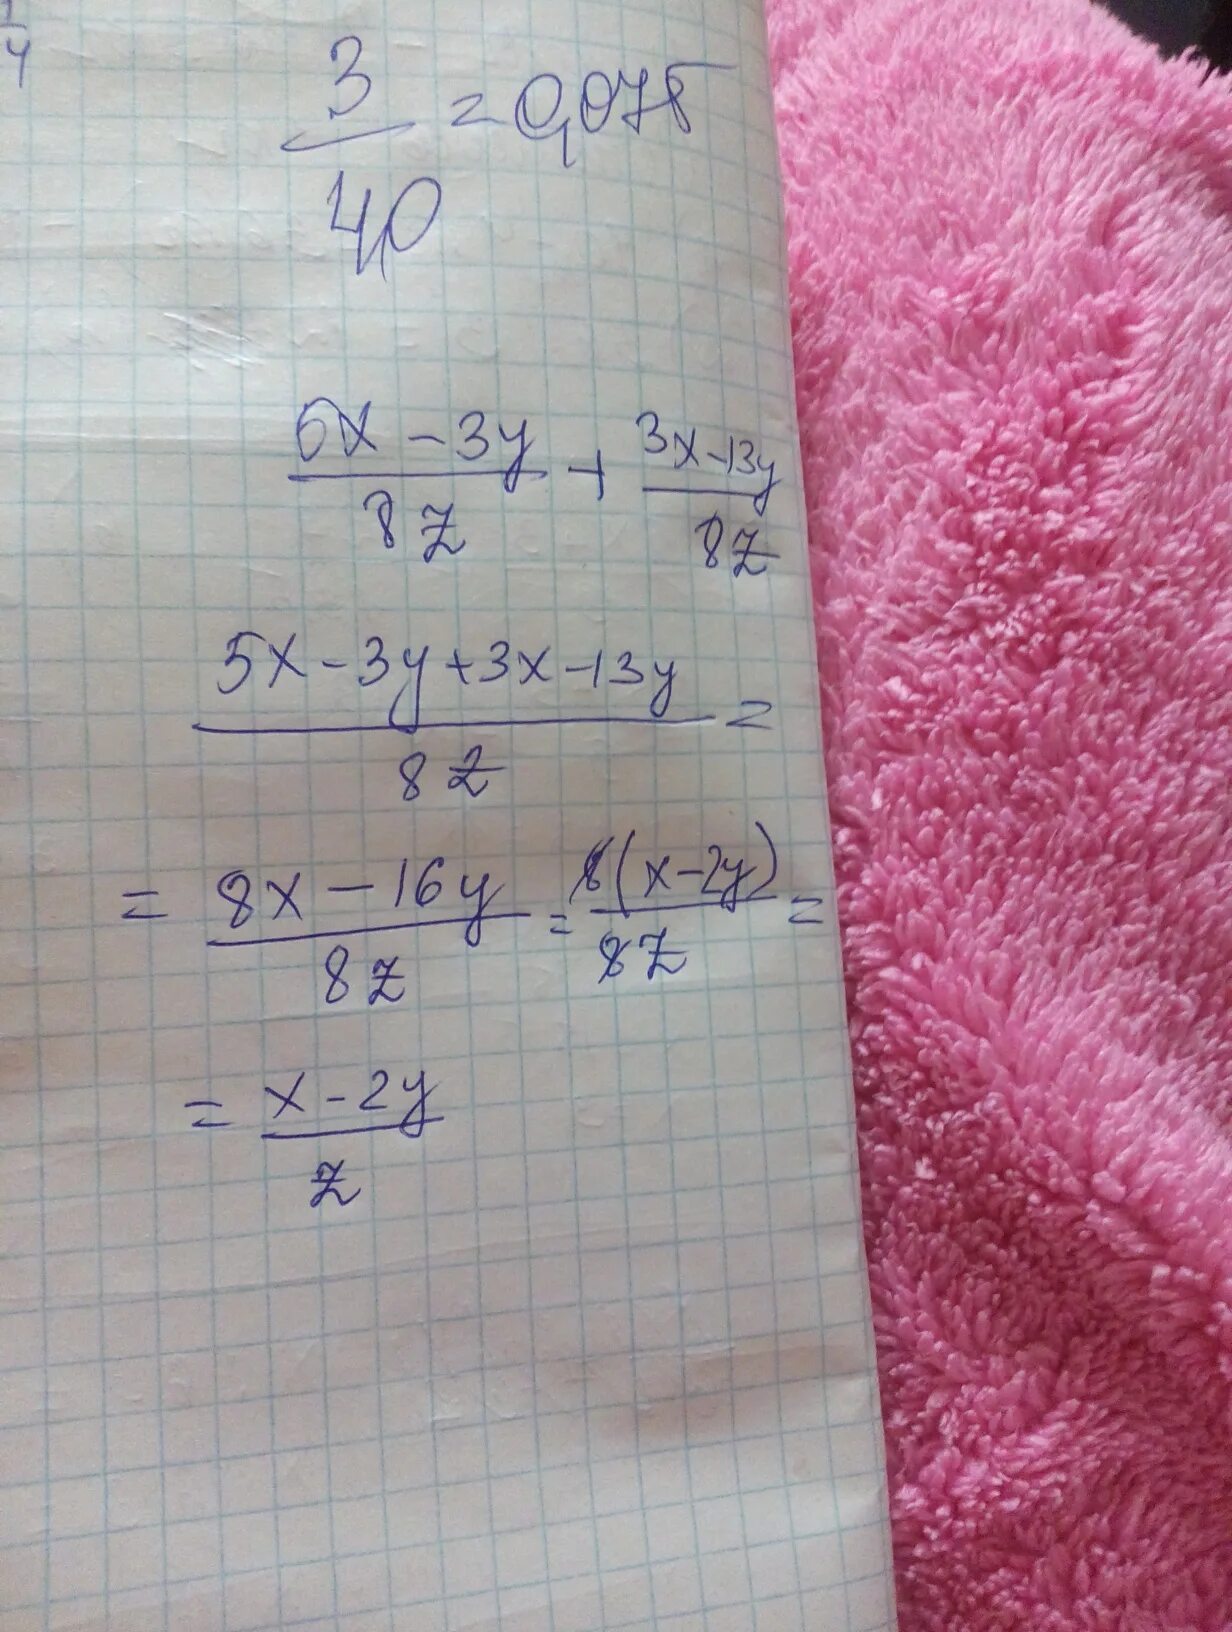 1/4
3/40 = 0,075
5x - 3y/8z + 3x - 13y/8z
5x - 3y + 3x - 13y/8z =
= 8x - 16y/8z = 8(x - 2y)/8z =
= x - 2y/z